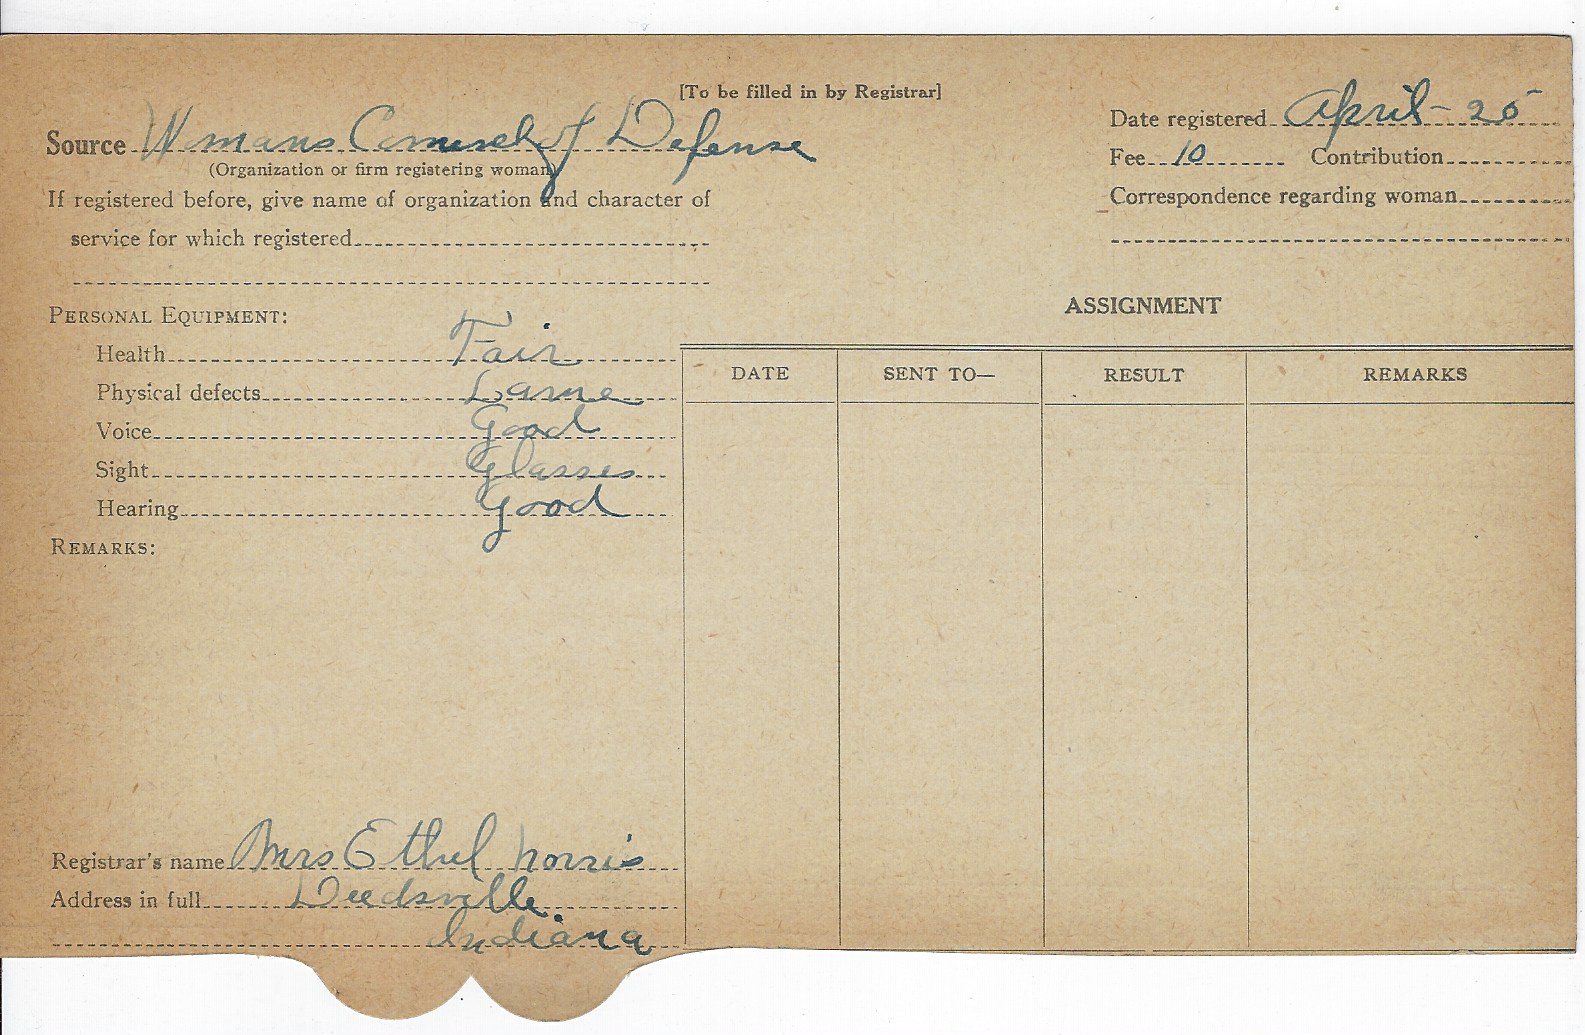 [To be filled in by Registrar]
Source Womans Counsel of Defense
(Organization or firm registering woman)
If registered before, give name of organization and character of
service for which registered
Date registered April - 25
Fee 10 Contribution
Correspondence regarding woman
PERSONAL EQUIPMENT:
Health Fair
Physical defects Lame
Voice Good
Sight Glasses
Hearing Good
REMARKS:
ASSIGNMENT
DATE SENT TO— RESULT REMARKS
Registrar's name Mrs Ethel Norris
Address in full Deedsville
Indiana